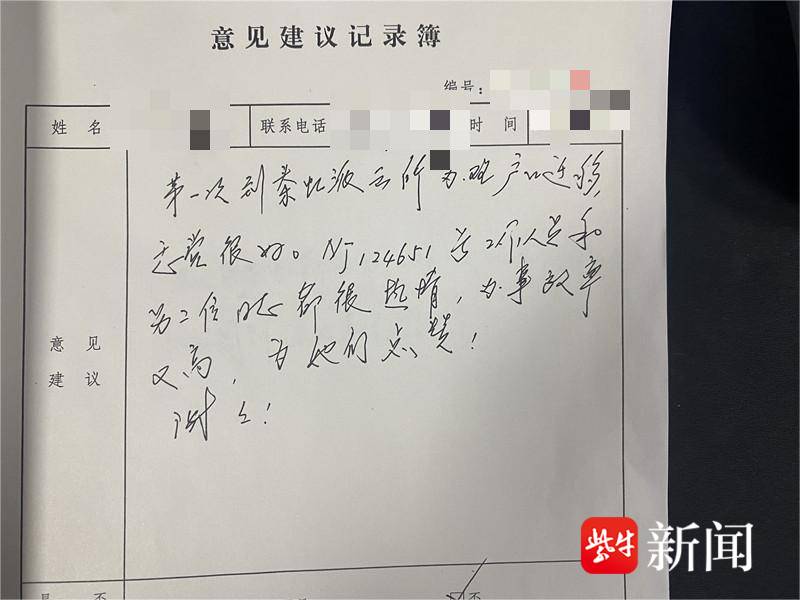 意见建议记录簿
编号:
姓名 联系电话 时间
第一次到秦虹派出所办理户口迁移,
感觉很好。NJ124651号工作人员和
另一位同志都很热情,办事效率
又高,为他们点赞!
谢谢!
意见
建议
是否
否
紫牛新闻